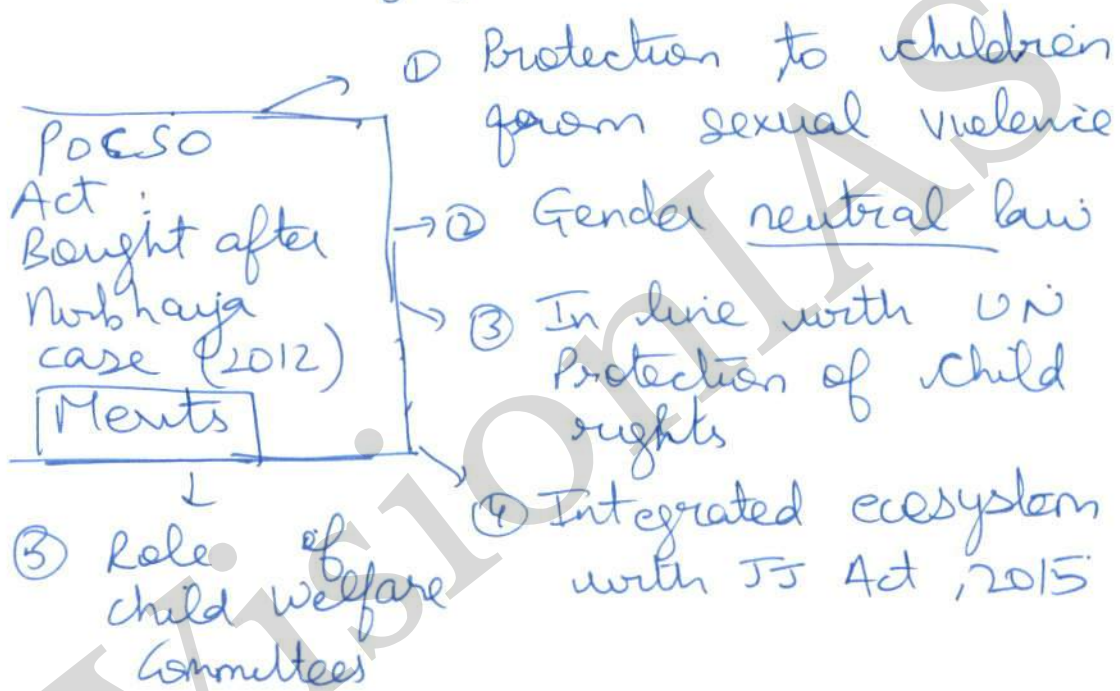 POCSO
Act :
Bought after
Nirbhaya
case (2012)
Merits
① Protection to children
from sexual violence
→② Gender neutral law
③ In line with UN
Protection of child
rights
④ Integrated ecosystem
with JJ Act, 2015
⑤ Role of
child Welfare
Committees
VisionIAS